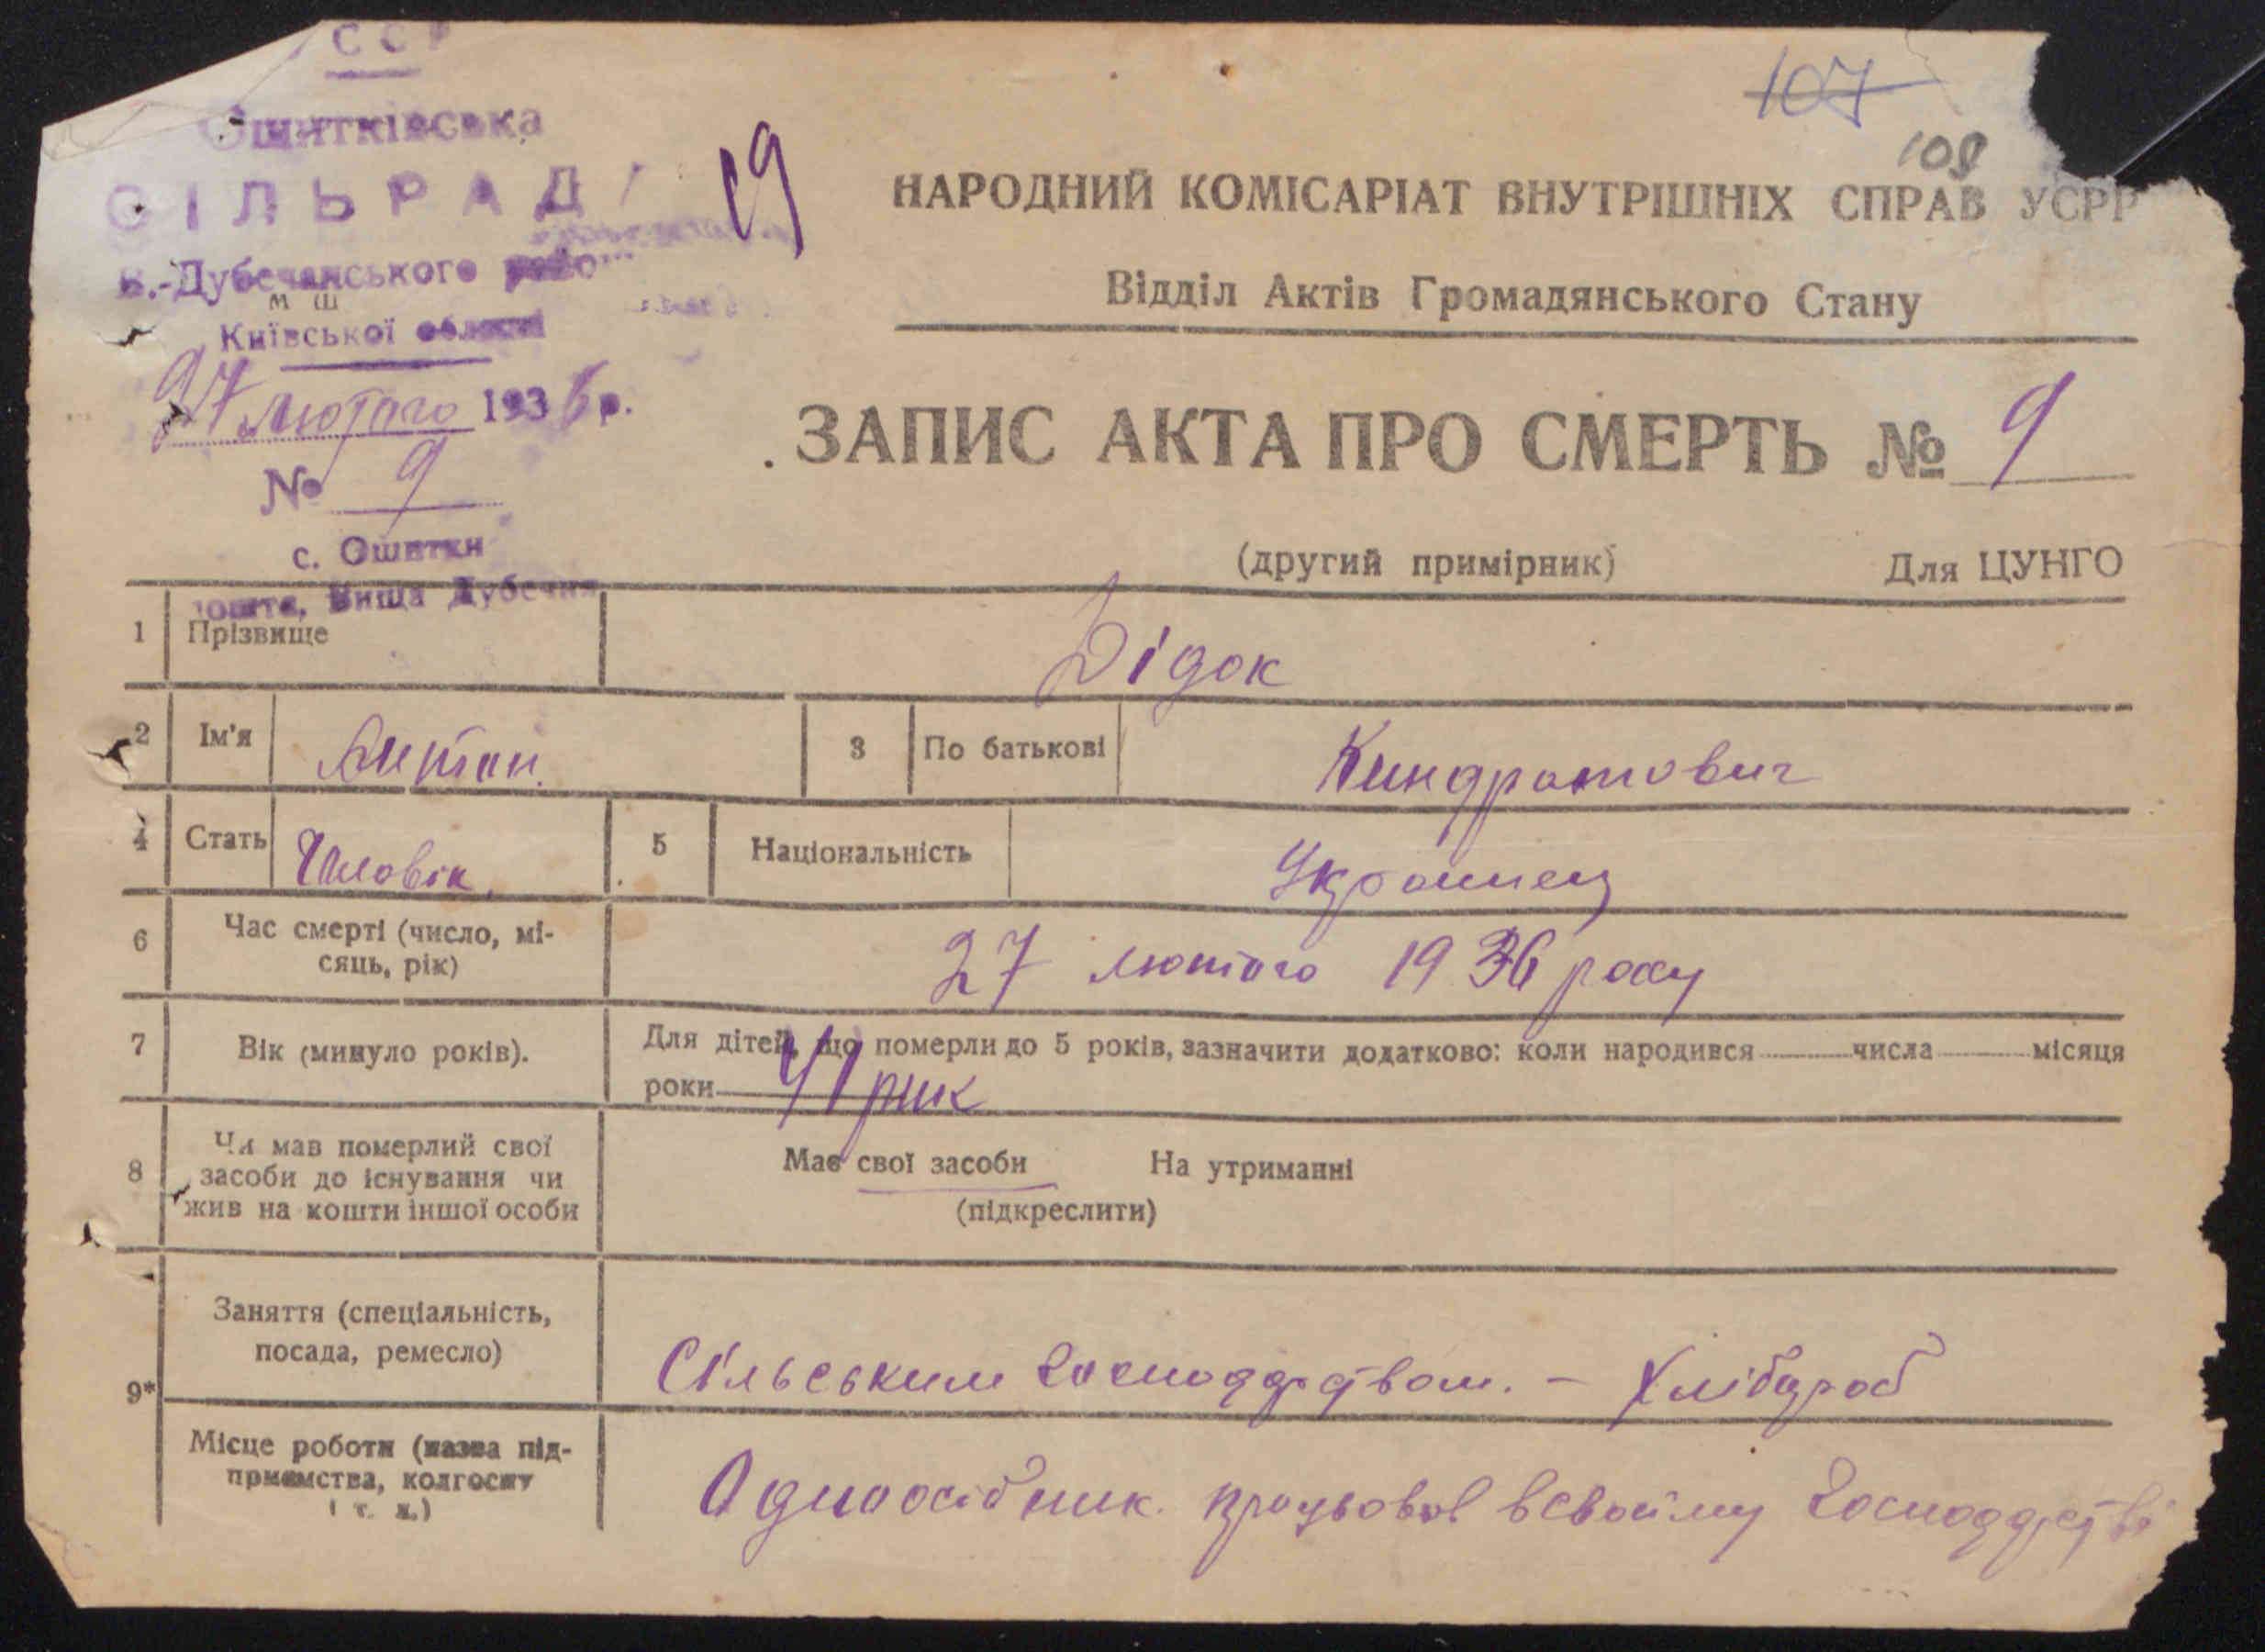 ССР
Ошитківська
СІЛЬРАДА
В.-Дубечанського
Київської області
27 лютого 1936 р.
№ 9
с. Ошитки
пошта, Вища Дубечня
19
107
108
НАРОДНИЙ КОМІСАРІАТ ВНУТРІШНІХ СПРАВ УСРР
Відділ Актів Громадянського Стану
ЗАПИС АКТА ПРО СМЕРТЬ № 9
(другий примірник) Для ЦУНГО
1 Прізвище Дідок
2 Ім'я Антон 3 По батькові Киндратович
4 Стать Чиловік 5 Національність Украинец
6 Час смерті (число, мі-
сяць, рік) 27 лютого 1936 року
7 Вік (минуло років). Для дітей, що померли до 5 років, зазначити додатково: коли народився числа місяця
роки 41 рик
8 Чи мав померлий свої
засоби до існування чи
жив на кошти іншої особи
Має свої засоби На утриманні
(підкреслити)
9* Заняття (спеціальність,
посада, ремесло) Сільським господарством. – Хлібороб
Місце роботи (назва під-
приємства, колгоспу
і т. и.) Одноосібник. працьовав всвойму господарстві